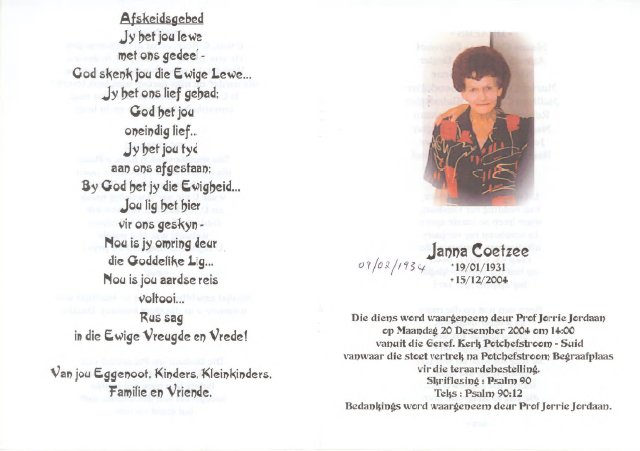 Afskeidsgebed
Jy het jou lewe
met ons gedeel -
God skenk jou die Ewige Lewe...
Jy het ons lief gehad;
God het jou
oneindig lief...
Jy het jou tyd
aan ons afgestaan;
By God het jy die Ewigheid...
Jou lig het hier
vir ons geskyn -
Nou is jy omring deur
die Goddelike Lig...
Nou is jou aardse reis
voltooi...
Rus sag
in die Ewige Vreugde en Vrede!
Van jou Eggenoot, Kinders, Kleinkinders,
Familie en Vriende.
Janna Coetzee
*19/01/1931
09/02/1934
+15/12/2004
Die diens word waargeneem deur Prof Jorrie Jordaan
op Maandag 20 Desember 2004 om 14:00
vanuit die Geref. Kerk Potchefstroom - Suid
vanwaar die stoet vertrek na Potchefstroom Begraafplaas
vir die teraardebestelling.
Skriflesing : Psalm 90
Teks : Psalm 90:12
Bedankings word waargeneem deur Prof Jorrie Jordaan.